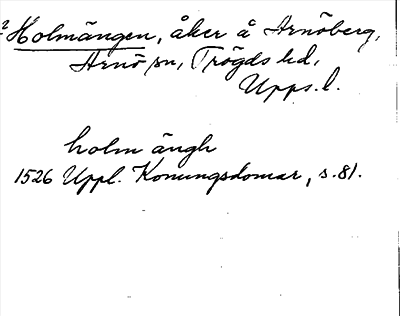 ? Holmängen, åker å Arnöberg,
Arnö sn, Trögds hd,
Upps. l.
holm ängh
1526 Uppl. Konungsdomar, s. 81.